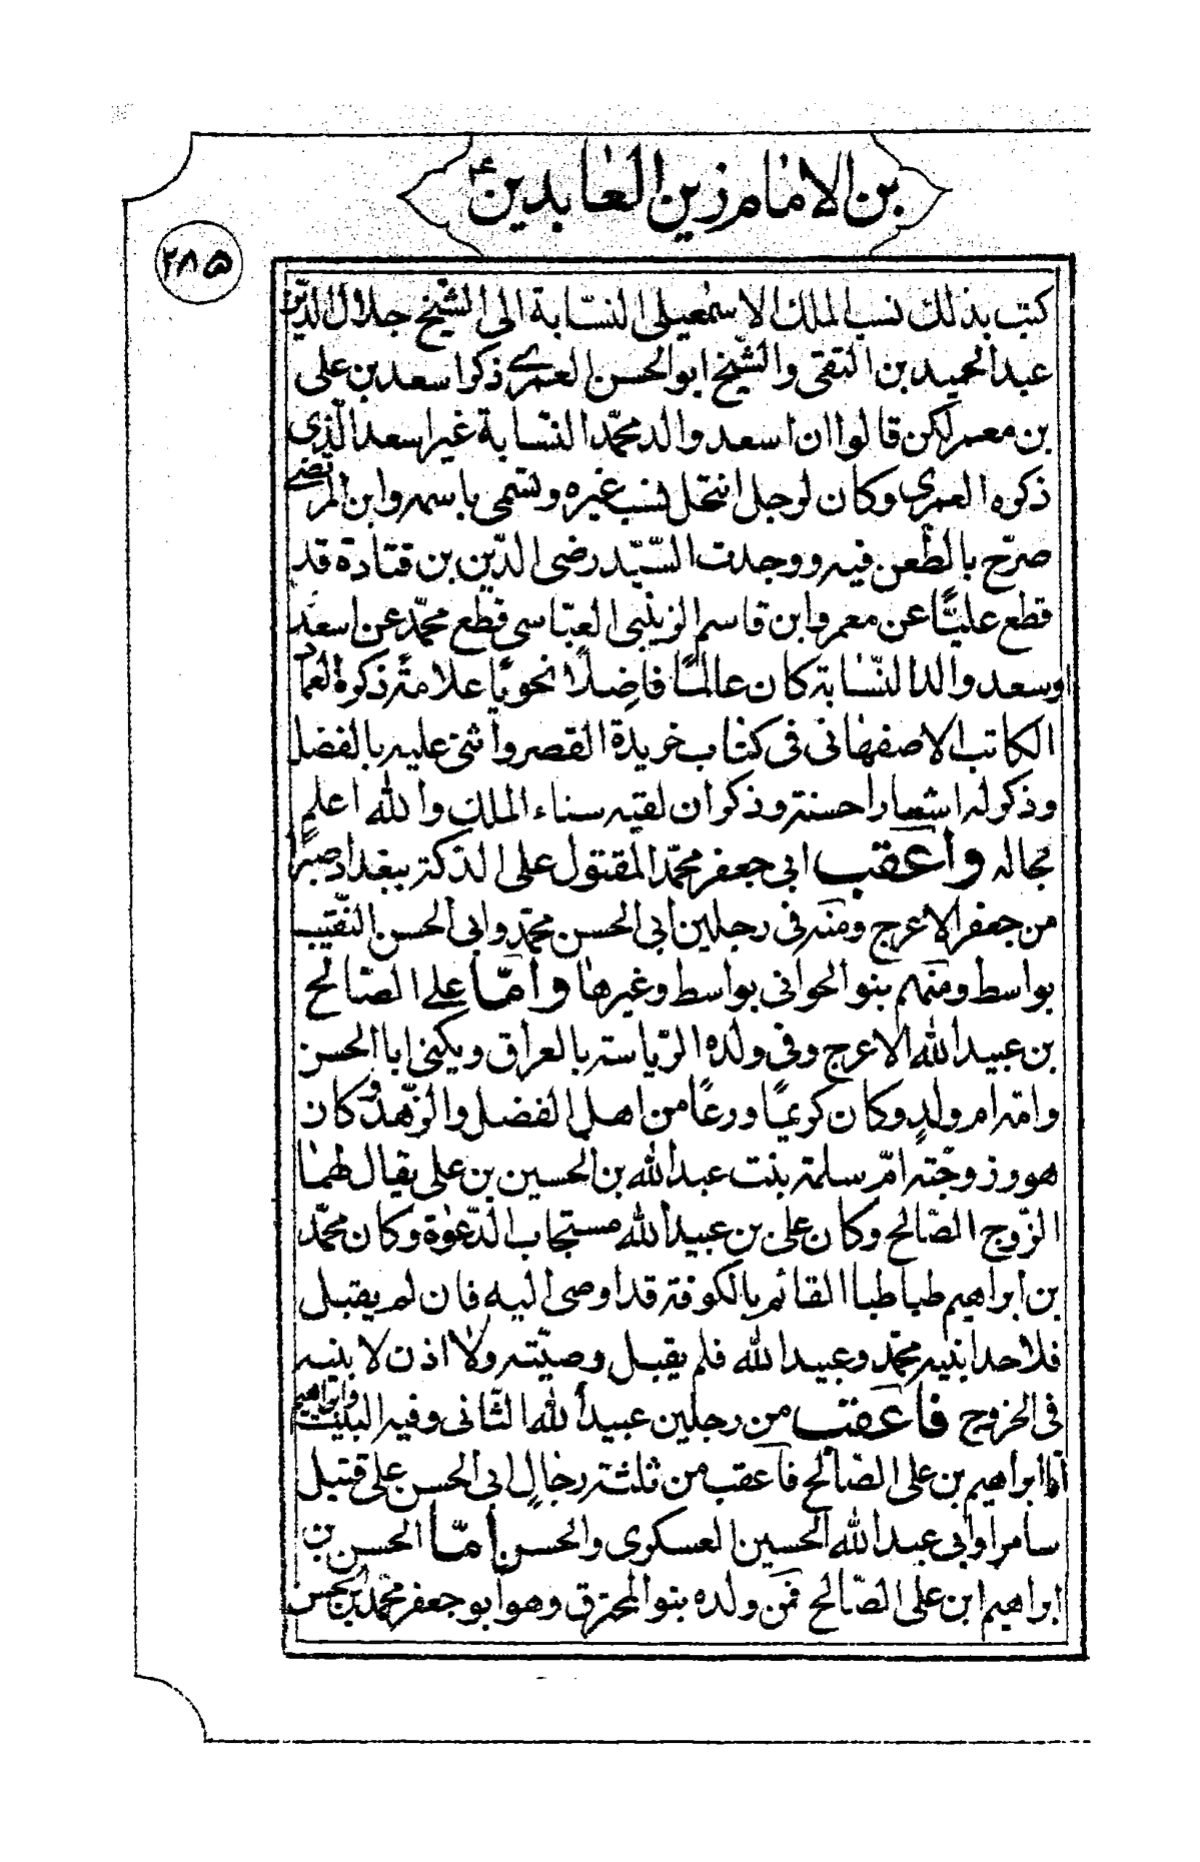 بن الامام زين العابدين ع
٢٨۵
كتب بذلك نسب الملك الاسمعيلى النسّابة الى الشّيخ جلال الدّين
عبد الحميد بن التقى والشّيخ ابو الحسن العمرى ذكر اسعد بن على
بن معمر لكن قالوا ان اسعد والد محمّد النسّابة غير اسعد الّذى
ذكره العمرى وكان لرجل انتحل نسب غيره وتسمى باسمه وابن المرتضى
صرّح بالطّعن فيه ووجدت السّيّد رضى الدّين بن قتادة قد
قطع عليّا عن معمر وابن قاسم الزينبى العبّاسى قطع محمّد عن اسعد
وسعد والد النّسّابة كان عالمًا فاضِلًا نحويًا علامةً ذكره العماد
الكاتب الاصفهانى فى كتاب خريدة القصر واثنى عليه بالفضل
وذكر له اشعارا حسنة وذكر ان لقيه سناء الملك والله اعلم
بحاله واعقب ابى جعفر محمّد المقتول على الدكة ببغداد صبرًا
من جعفر الاعرج ومنه فى رجلين ابى الحسن محمّد وابى الحسن النّقيب
بواسط ومنهم بنو الحوانى بواسط وغيرها وامّا على الصّالح
بن عبيد الله الاعرج وفى ولده الرّياسة بالعراق ويكنى ابا الحسن
وامّه ام ولدٍ وكان كريمًا ورعًا من اهل الفضل والزّهد وكان
هو وزوجته امّ سلمة بنت عبد الله بن الحسين بن على يقال لهما
الزّوج الصّالح وكان على بن عبيد الله مستجاب الدّعوة وكان محمّد
بن ابراهيم طباطبا القائم بالكوفة قد اوصى اليه فان لم يقبل
فلاحد ابنيه محمّد وعبيد الله فلم يقبل وصيّته ولا اذن لابنيه
فى الخروج فاعقب من رجلين عبيد الله الثّانى وفيه البيت وابراهيم
امّا ابراهيم بن على الصّالح فاعقب من ثلثة رجالٍ ابى الحسن على قتيل
سامرا وابى عبد الله الحسين العسكرى والحسن امّا الحسن بن
ابراهيم ابن على الصّالح فمن ولده بنو المحترق وهو ابو جعفر محمّد بن الحسن